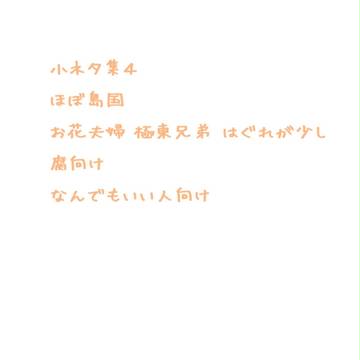 小ネタ集４
ほぼ島国
お花夫婦 極東兄弟 はぐれが少し
腐向け
なんでもいい人向け